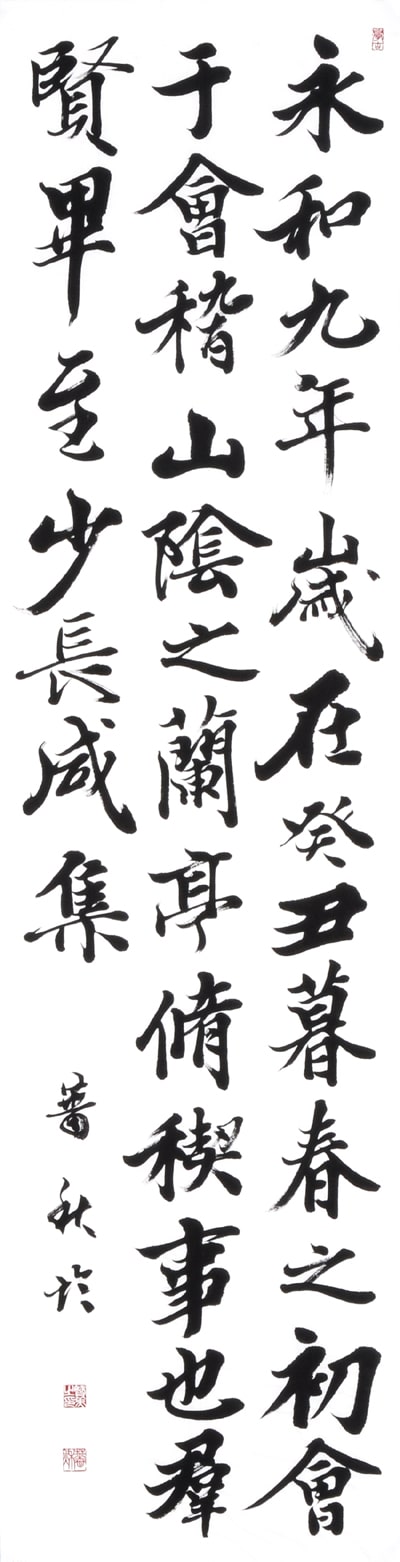 永和九年歲在癸丑暮春之初會
于會稽山陰之蘭亭脩稧事也羣
賢畢至少長咸集
秋